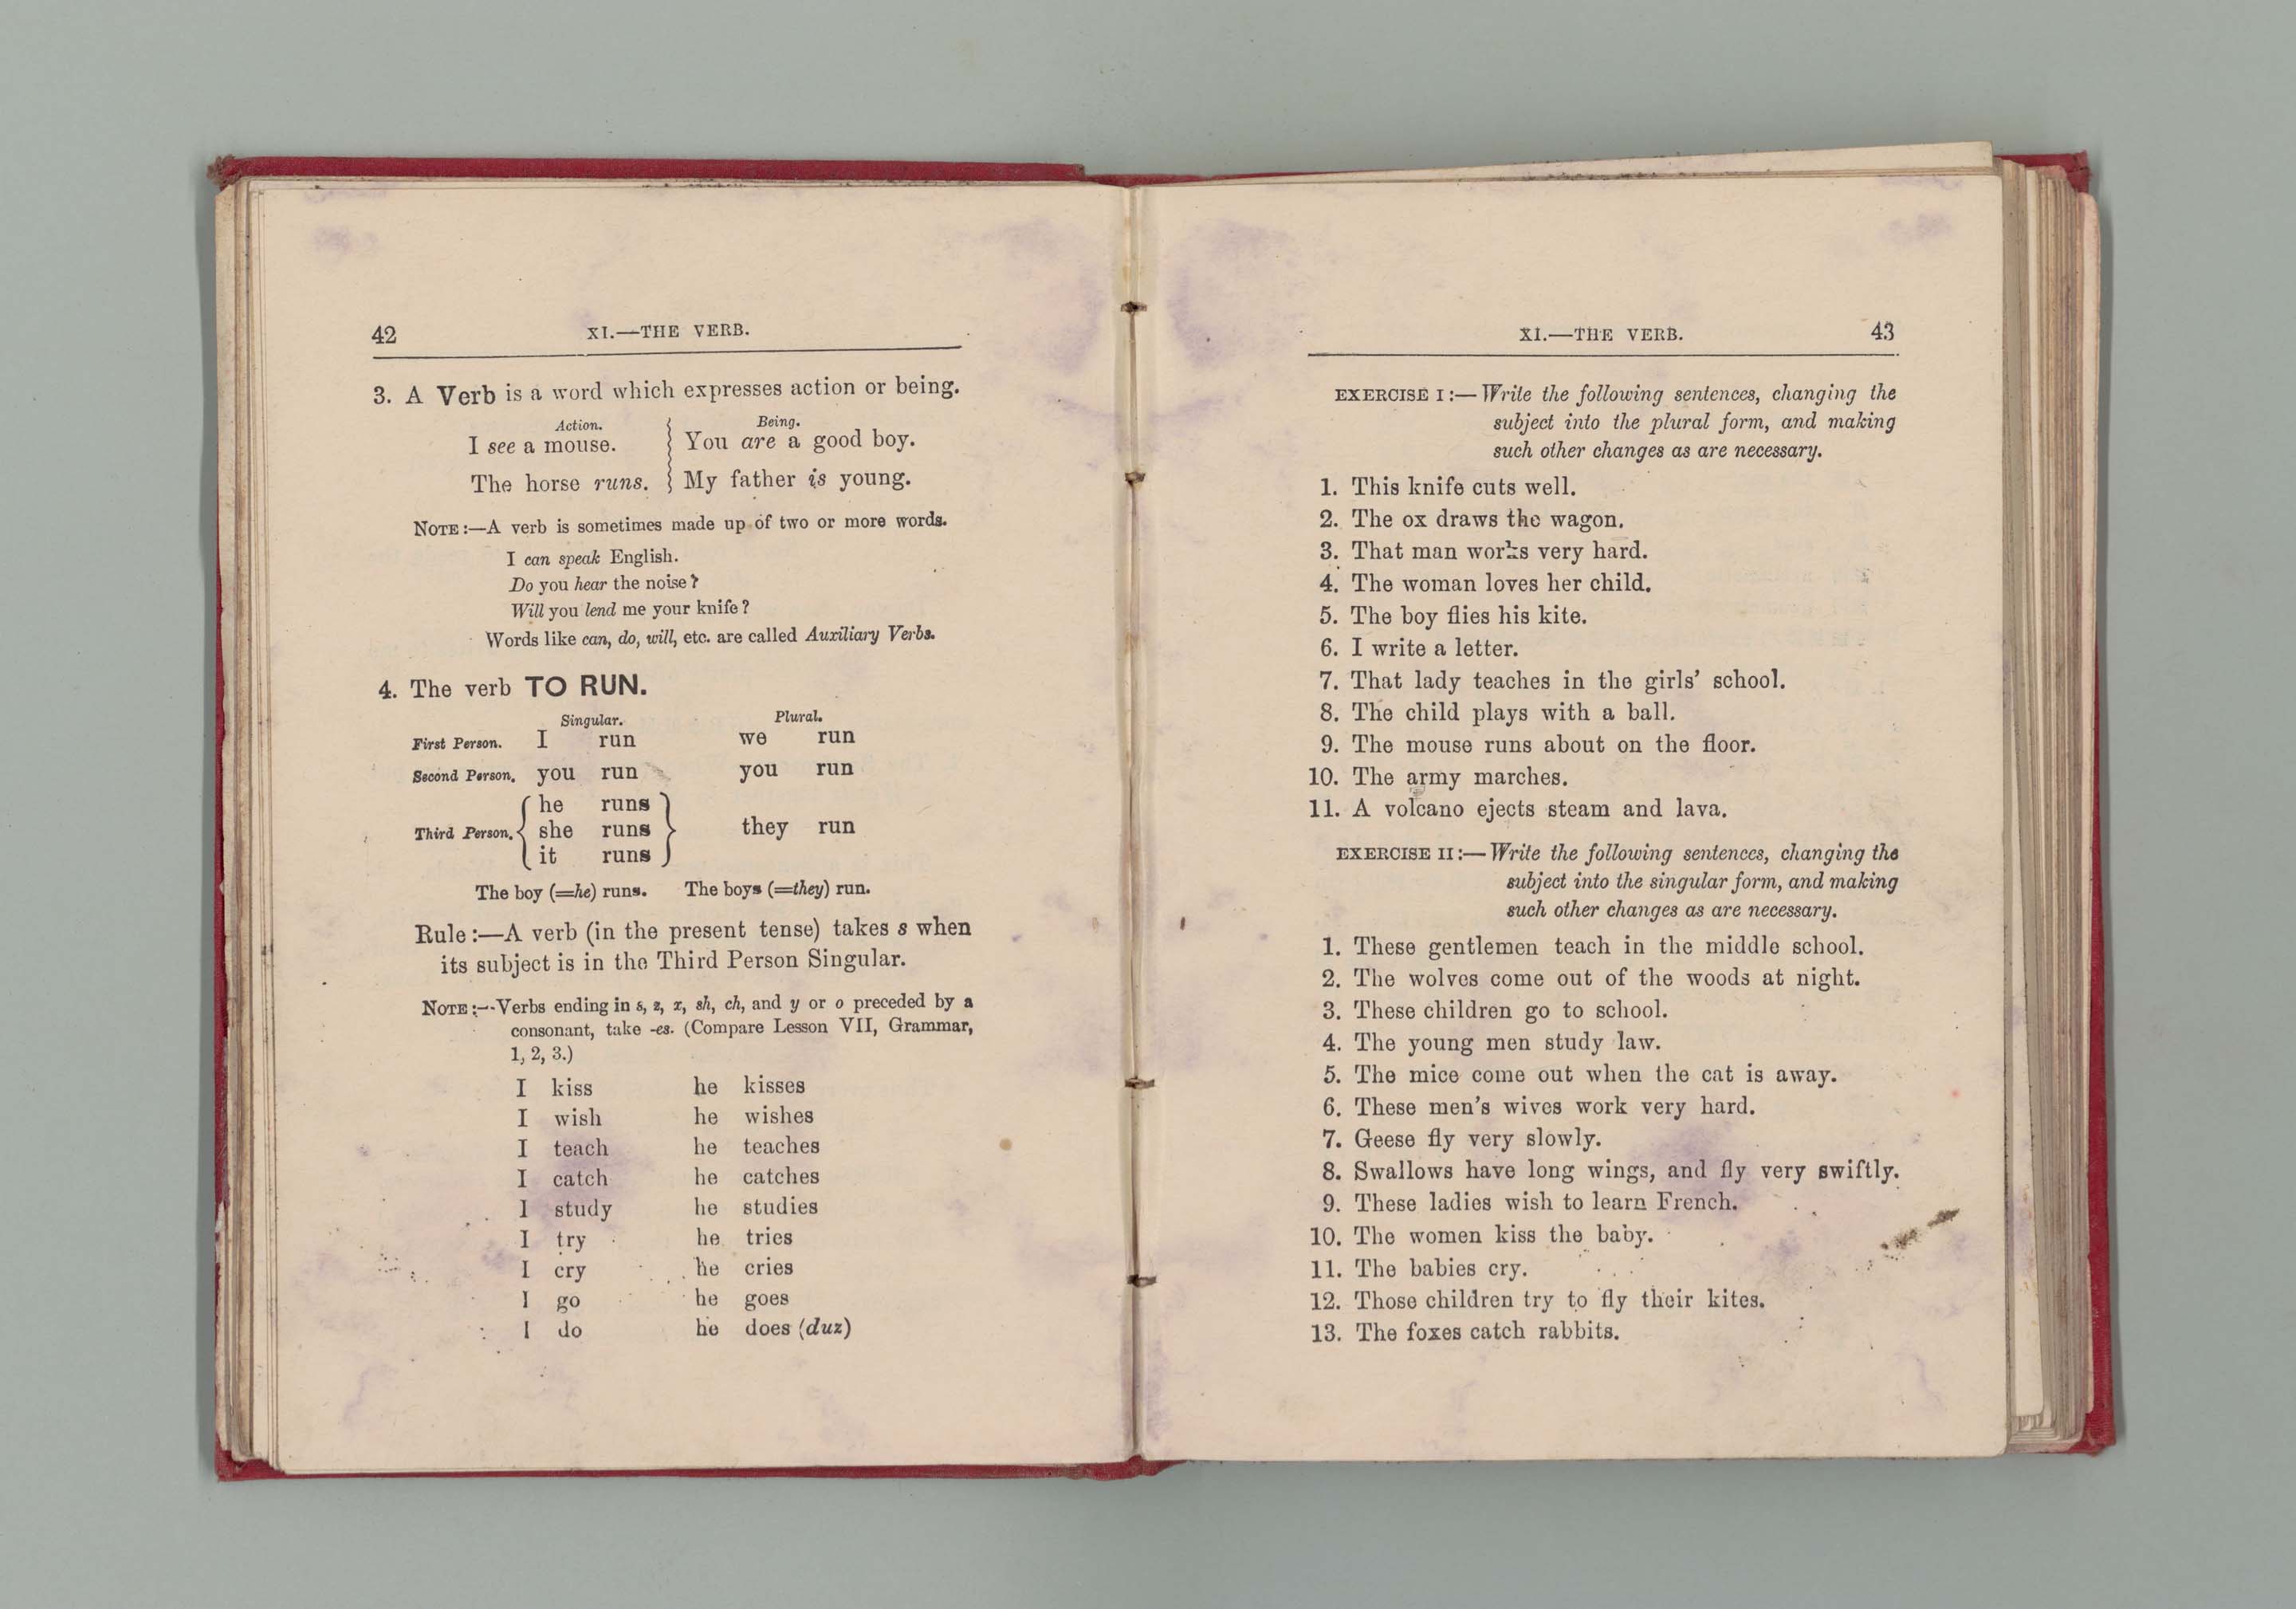 42 XI.—THE VERB.
3. A Verb is a word which expresses action or being.
Action. Being.
I see a mouse. You are a good boy.
The horse runs. My father is young.
NOTE:—A verb is sometimes made up of two or more words.
I can speak English.
Do you hear the noise?
Will you lend me your knife?
Words like can, do, will, etc. are called Auxiliary Verbs.
4. The verb TO RUN.
Singular. Plural.
First Person. I run we run
Second Person. you run you run
he runs
Third Person. she runs they run
it runs
The boy (=he) runs. The boys (=they) run.
Rule:—A verb (in the present tense) takes s when
its subject is in the Third Person Singular.
NOTE:—Verbs ending in s, z, x, sh, ch, and y or o preceded by a
consonant, take -es. (Compare Lesson VII, Grammar,
1, 2, 3.)
I kiss he kisses
I wish he wishes
I teach he teaches
I catch he catches
I study he studies
I try he tries
I cry he cries
I go he goes
I do he does (duz)
XI.—THE VERB. 43
EXERCISE I:—Write the following sentences, changing the
subject into the plural form, and making
such other changes as are necessary.
1. This knife cuts well.
2. The ox draws the wagon.
3. That man works very hard.
4. The woman loves her child.
5. The boy flies his kite.
6. I write a letter.
7. That lady teaches in the girls' school.
8. The child plays with a ball.
9. The mouse runs about on the floor.
10. The army marches.
11. A volcano ejects steam and lava.
EXERCISE II:—Write the following sentences, changing the
subject into the singular form, and making
such other changes as are necessary.
1. These gentlemen teach in the middle school.
2. The wolves come out of the woods at night.
3. These children go to school.
4. The young men study law.
5. The mice come out when the cat is away.
6. These men's wives work very hard.
7. Geese fly very slowly.
8. Swallows have long wings, and fly very swiftly.
9. These ladies wish to learn French.
10. The women kiss the baby.
11. The babies cry.
12. Those children try to fly their kites.
13. The foxes catch rabbits.